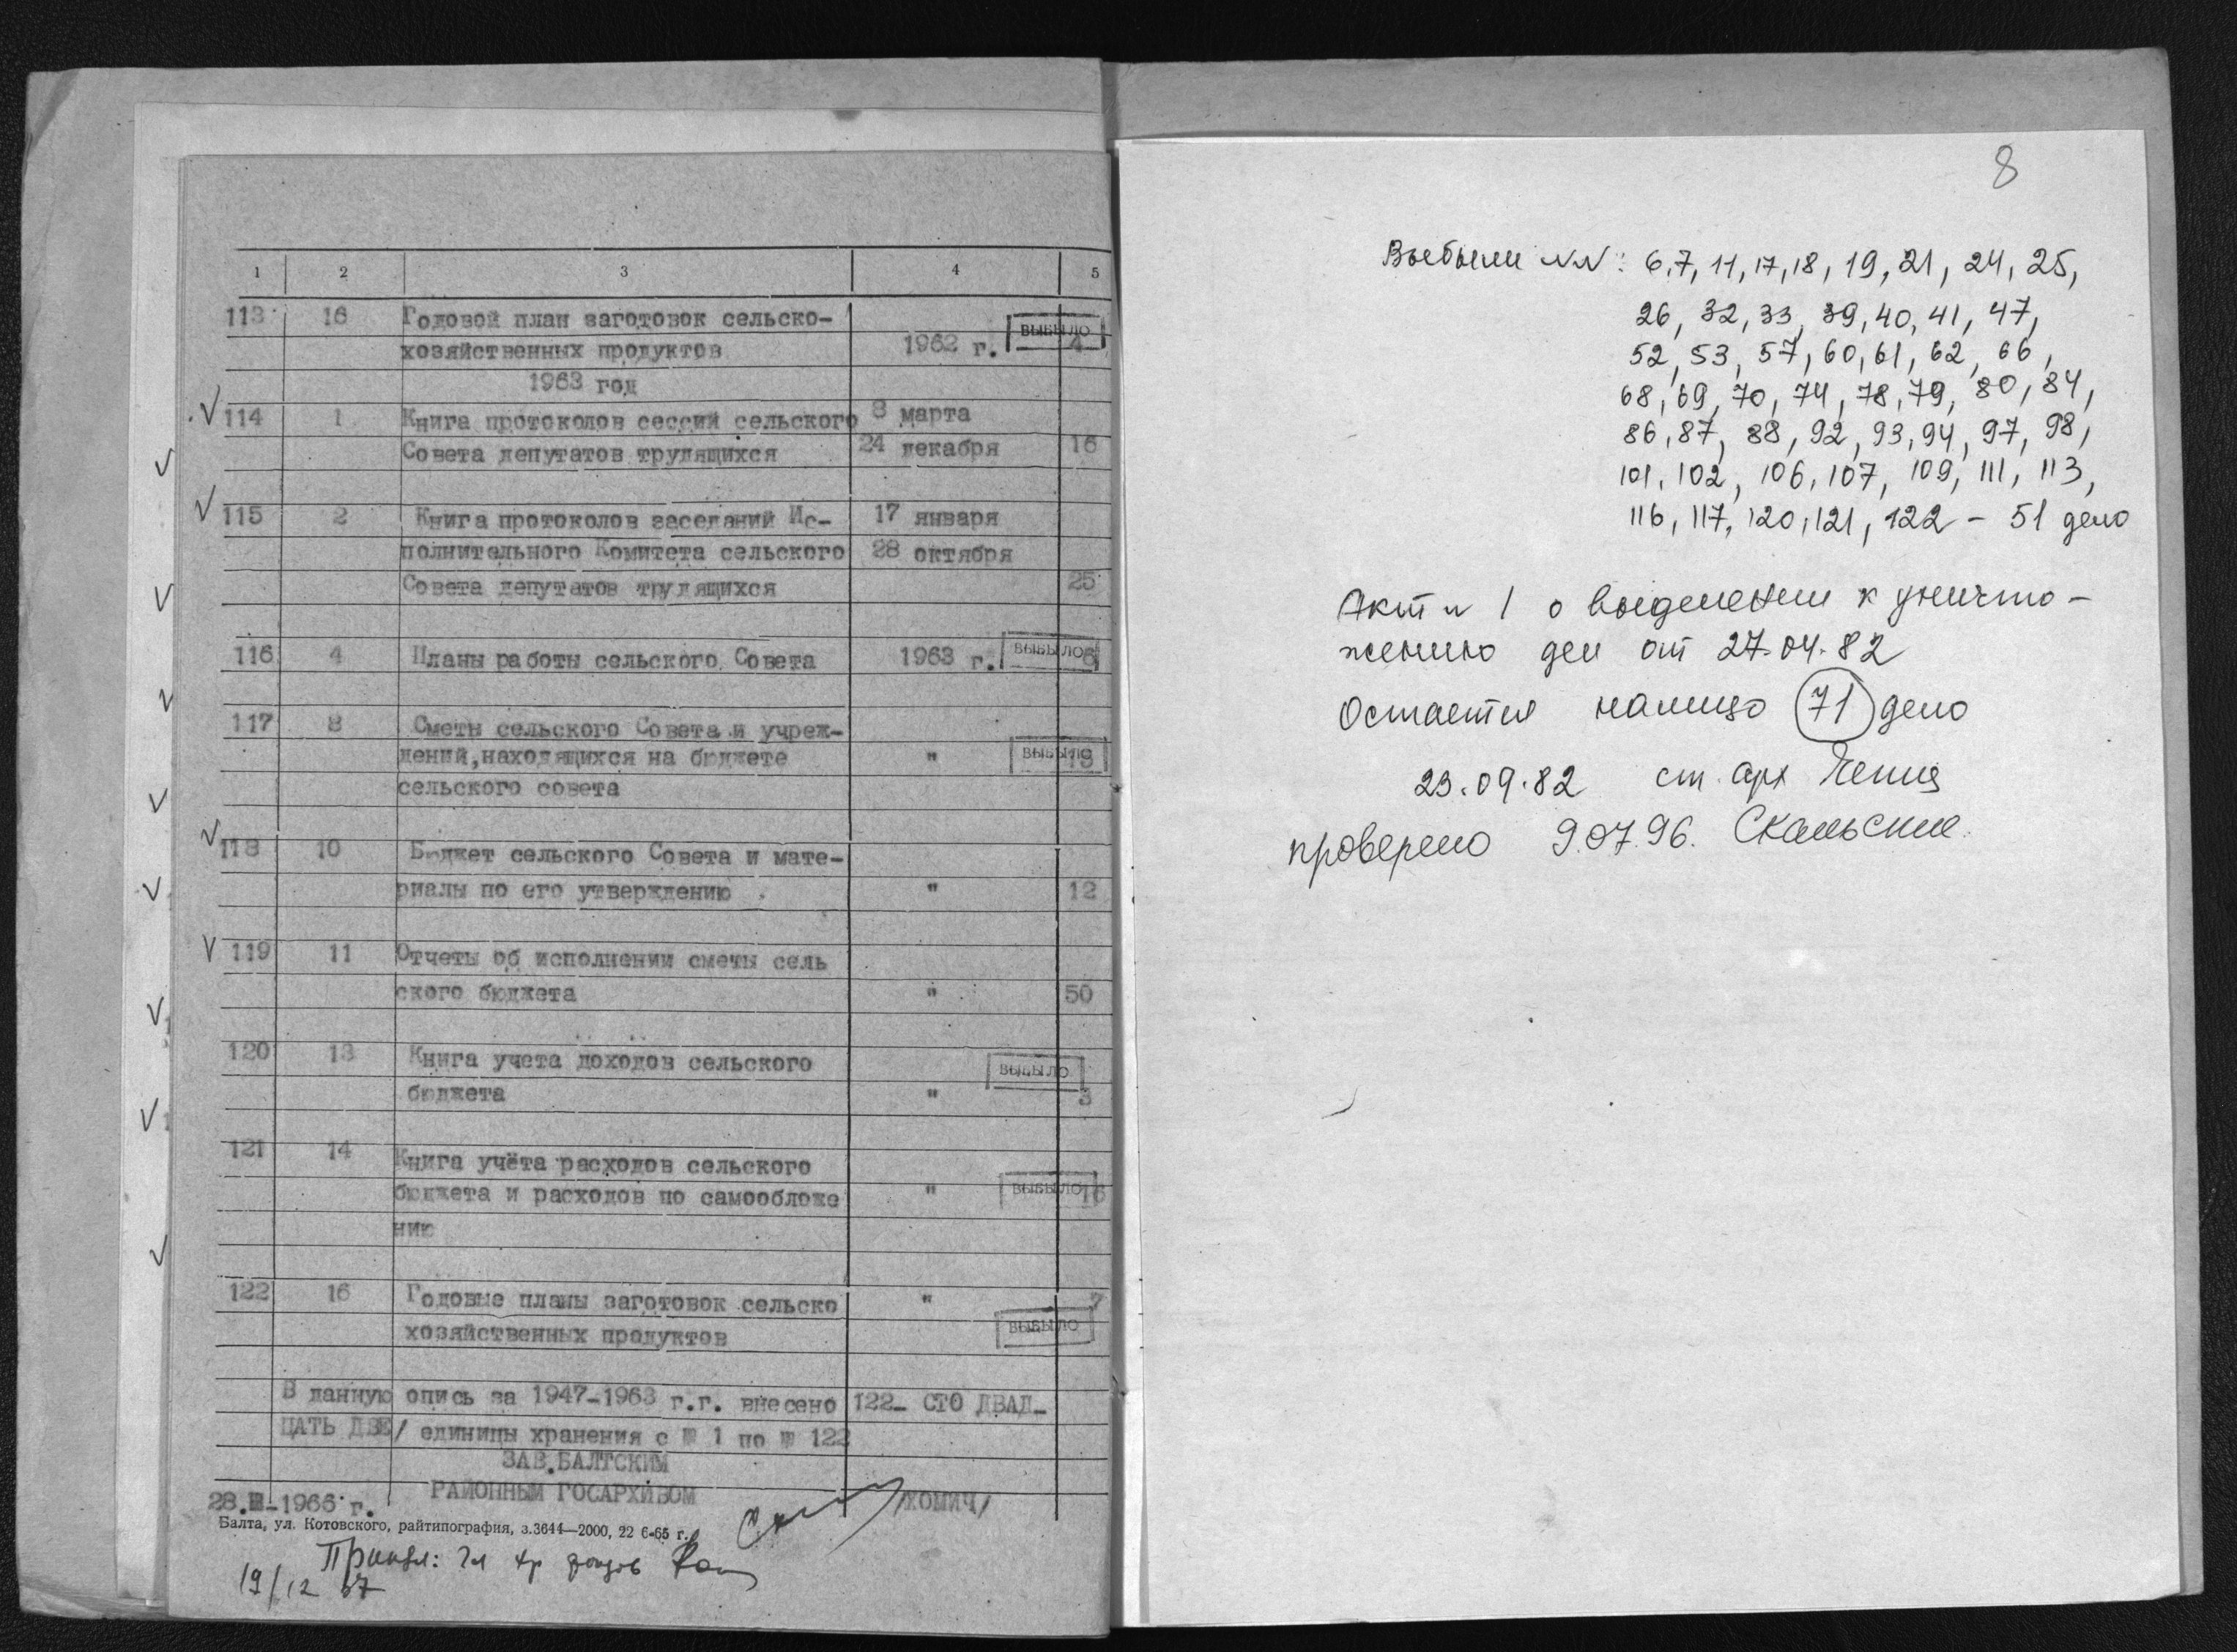 1 2 3 4 5
113 16 Годовой план заготовок сельско-
выбыло
хозяйственных продуктов 1962 г. 4
1963 год
114 1 Книга протоколов сессий сельского 8 марта
Совета депутатов трудящихся 24 декабря 16
115 2 Книга протоколов заседаний Ис- 17 января
полнительного Комитета сельского 28 октября
Совета депутатов трудящихся 25
116 4 Планы работы сельского Совета 1963 г. выбыло 6
117 8 Сметы сельского Совета и учреж-
дений, находящихся на бюджете " выбыло 19
сельского совета
118 10 Бюджет сельского Совета и мате-
риалы по его утверждению " 12
119 11 Отчеты об исполнении сметы сель
ского бюджета " 50
120 13 Книга учета доходов сельского
выбыло
бюджета " 3
121 14 Книга учёта расходов сельского
бюджета и расходов по самообложе " выбыло 16
нию
122 16 Годовые планы заготовок сельско " 7
хозяйственных продуктов выбыло
В данную опись за 1947-1963 г.г. внесено 122- СТО ДВАД-
ЦАТЬ ДВЕ/ единицы хранения с № 1 по № 122
ЗАВ.БАЛТСКИМ
РАЙОННЫМ ГОСАРХИВОМ /ХОМИЧ/
28.III-1966 г.
Балта, ул. Котовского, райтипография, з.3644—2000, 22 6-65 г.
Принял: Гл хр фондов
19/12 67
8
Выбыли NN: 6,7,11,17,18,19,21,24,25,
26,32,33,39,40,41,47,
52,53,57,60,61,62,66,
68,69,70,74,78,79,80,84,
86,87,88,92,93,94,97,98,
101,102,106,107,109,111,113,
116,117,120,121,122 - 51 дело
Акт N 1 о выделении к уничто-
жению дел от 27.04.82
Остается налицо 71 дело
23.09.82 ст. арх
проверено 9.07.96.